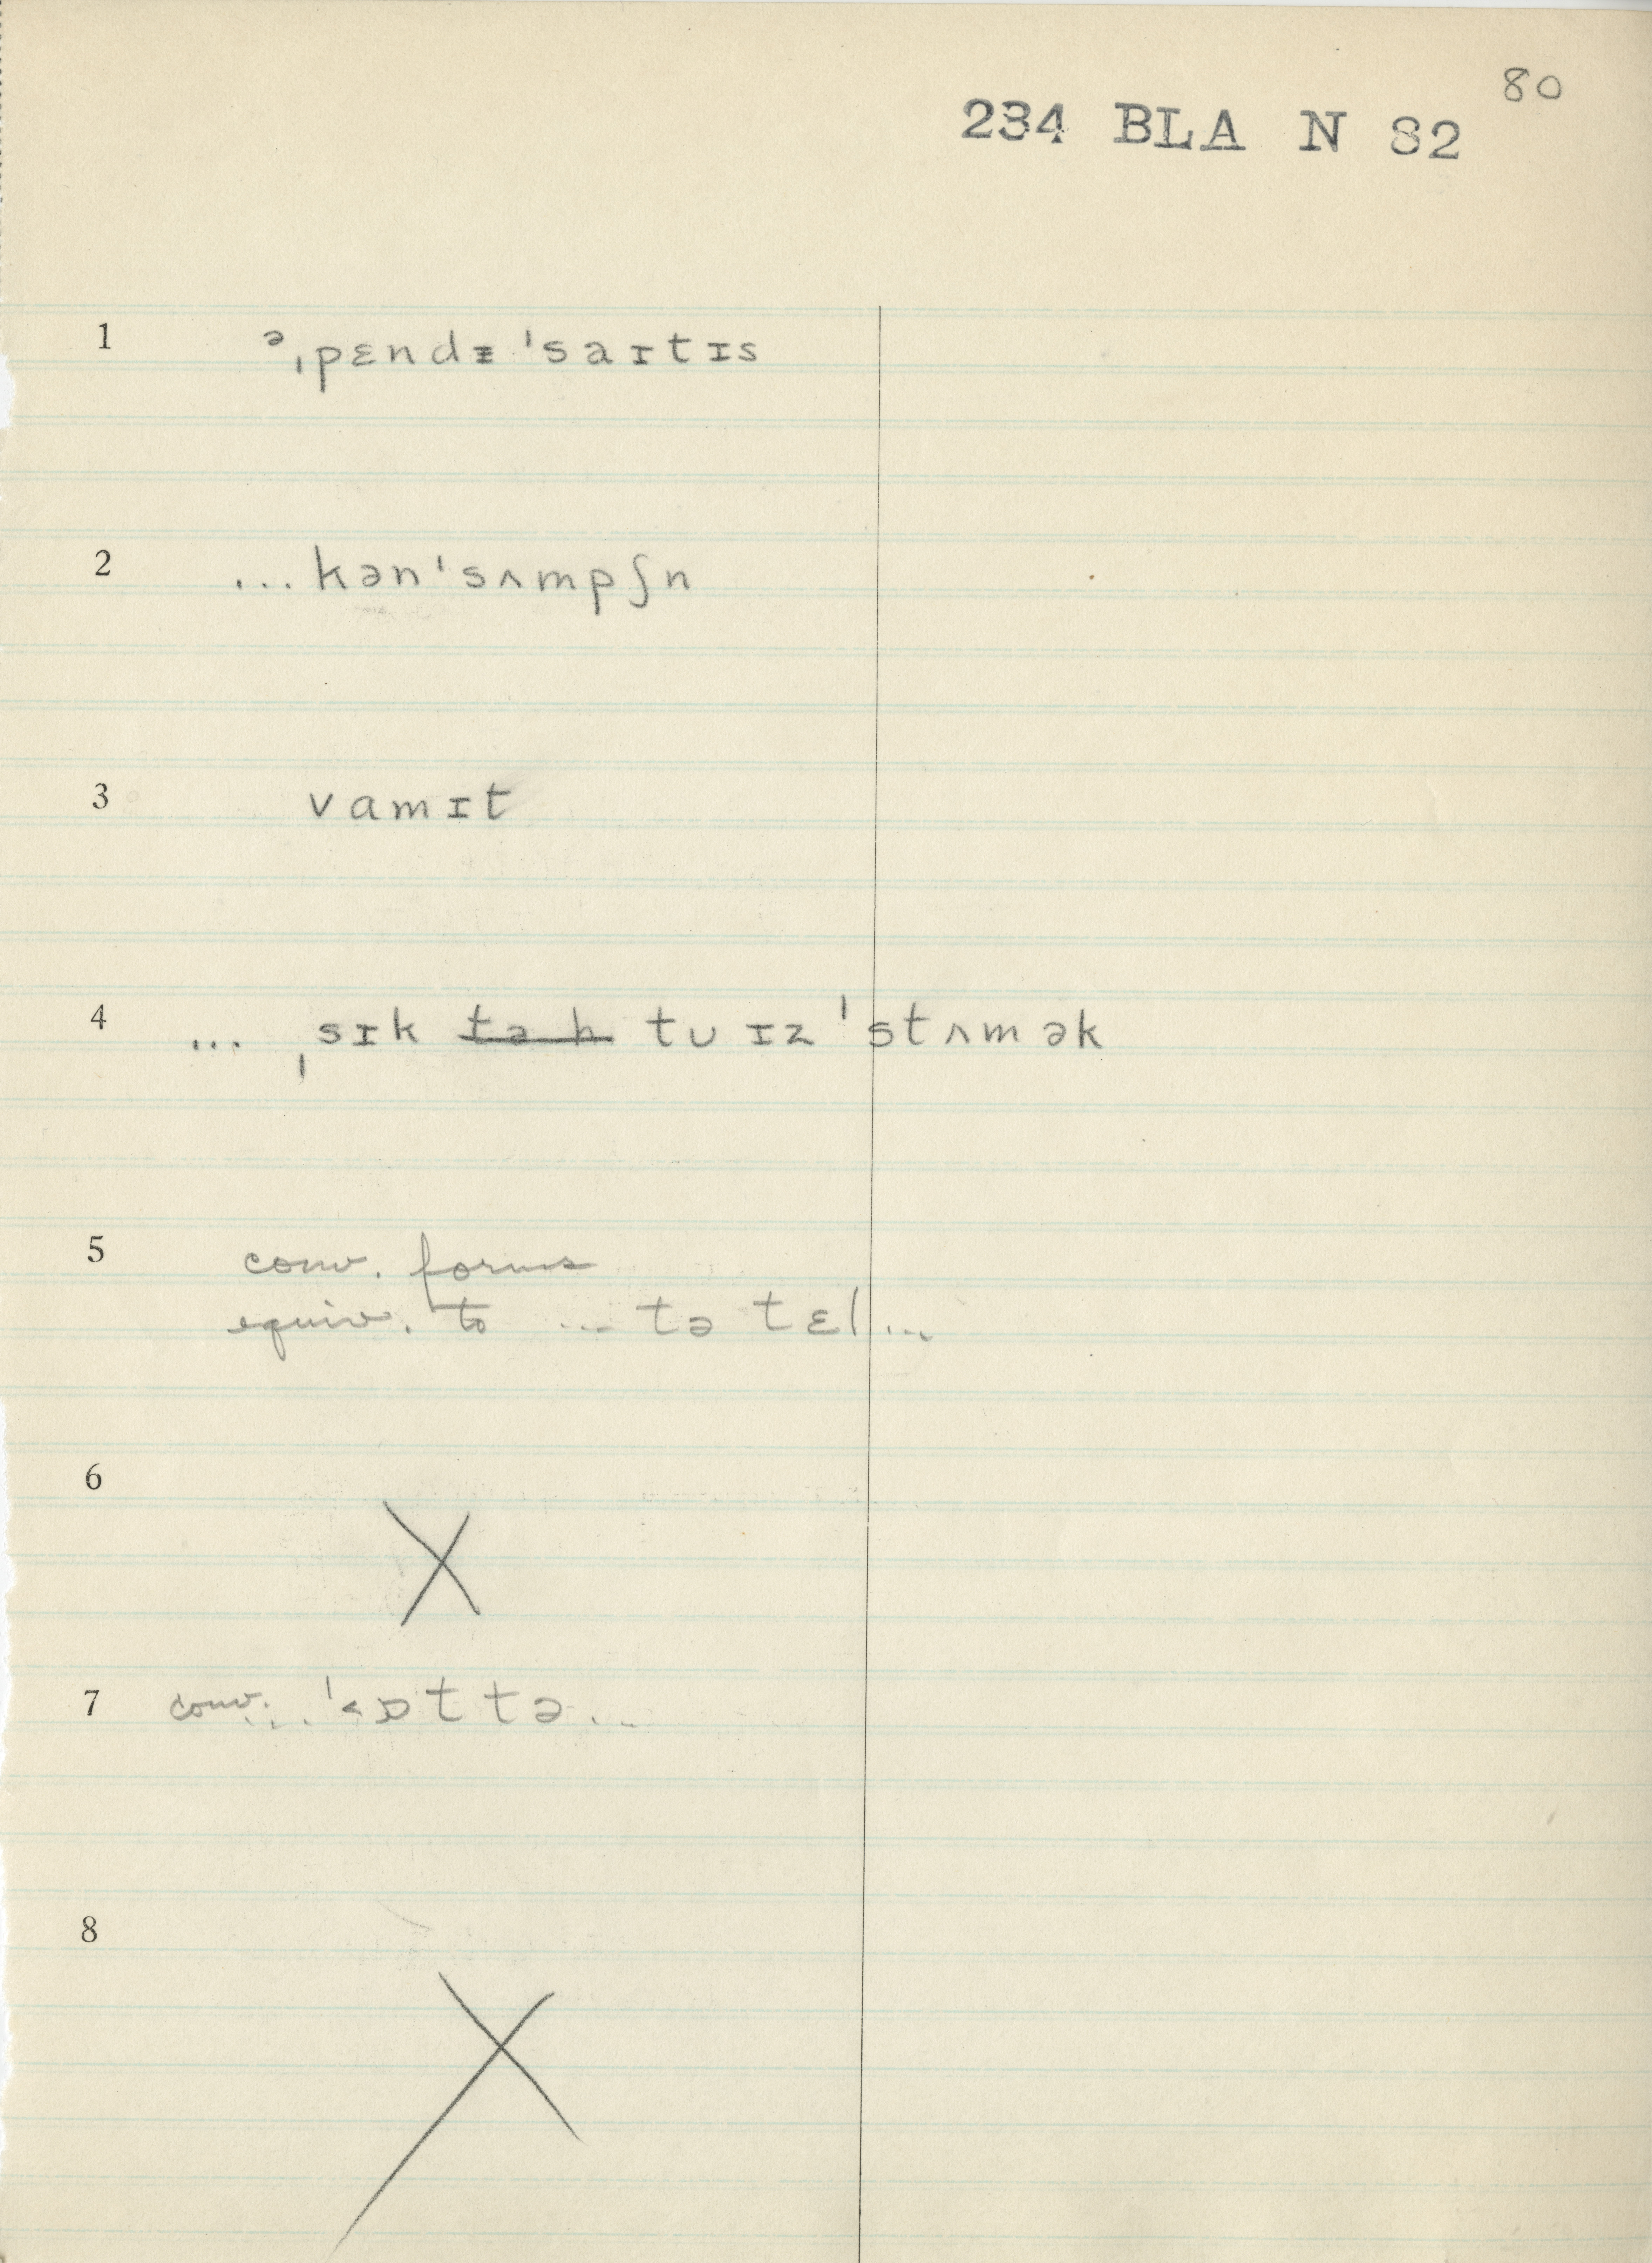 80
234 BLA N 82
1 ᵊˌpɛndᵻˈsaɪtɪs
2 ... kənˈsʌmpʃn
3 vamɪt
4 ... ˌsɪk tə h tu ɪz ˈstʌmək
5 conv. forms
equiv. to ... tə tɛl ...
6 X
7 conv. ... tə ...
8 X